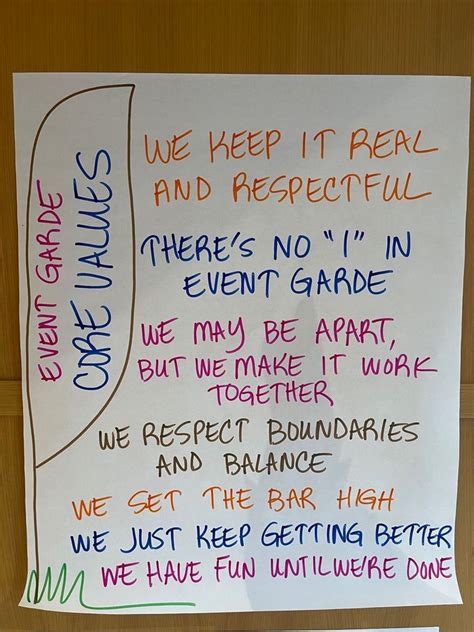 EVENT GARDE
CORE VALUES
WE KEEP IT REAL
AND RESPECTFUL
THERE'S NO "I" IN
EVENT GARDE
WE MAY BE APART,
BUT WE MAKE IT WORK
TOGETHER
WE RESPECT BOUNDARIES
AND BALANCE
WE SET THE BAR HIGH
WE JUST KEEP GETTING BETTER
WE HAVE FUN UNTIL WE'RE DONE